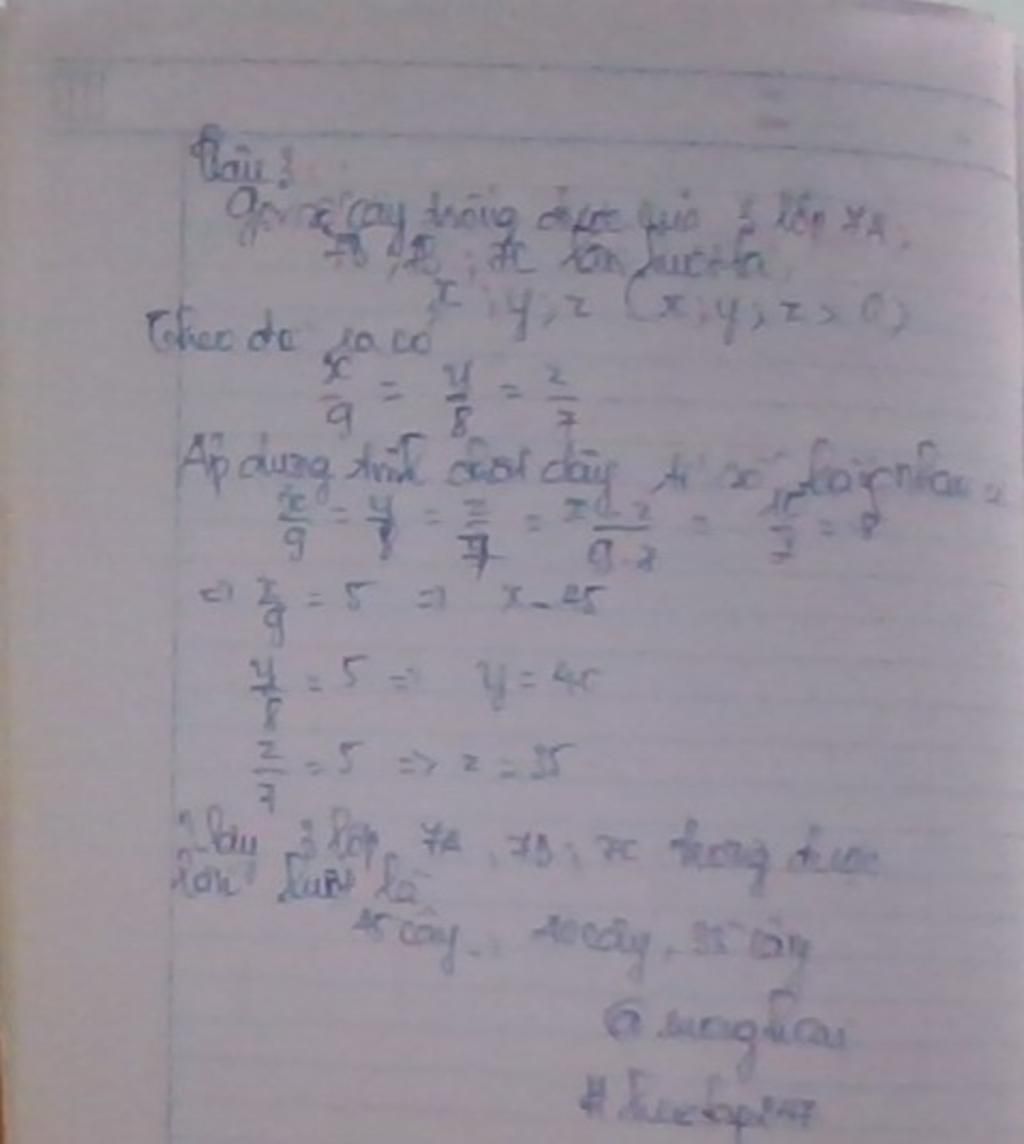 Câu 3
Gọi số cây trồng được của 3 lớp 7A,
7B, 7C lần lượt là
x, y, z (x, y, z > 0)
Theo đề ta có
x/9 = y/8 = z/7
Áp dụng tính chất dãy tỉ số bằng nhau
x/9 = y/8 = z/7 =
=> x/9 = 5 => x = 45
y/8 = 5 => y = 40
z/7 = 5 => z = 35
Vậy 3 lớp 7A, 7B, 7C trồng được
lần lượt là
45 cây, 40 cây, 35 cây